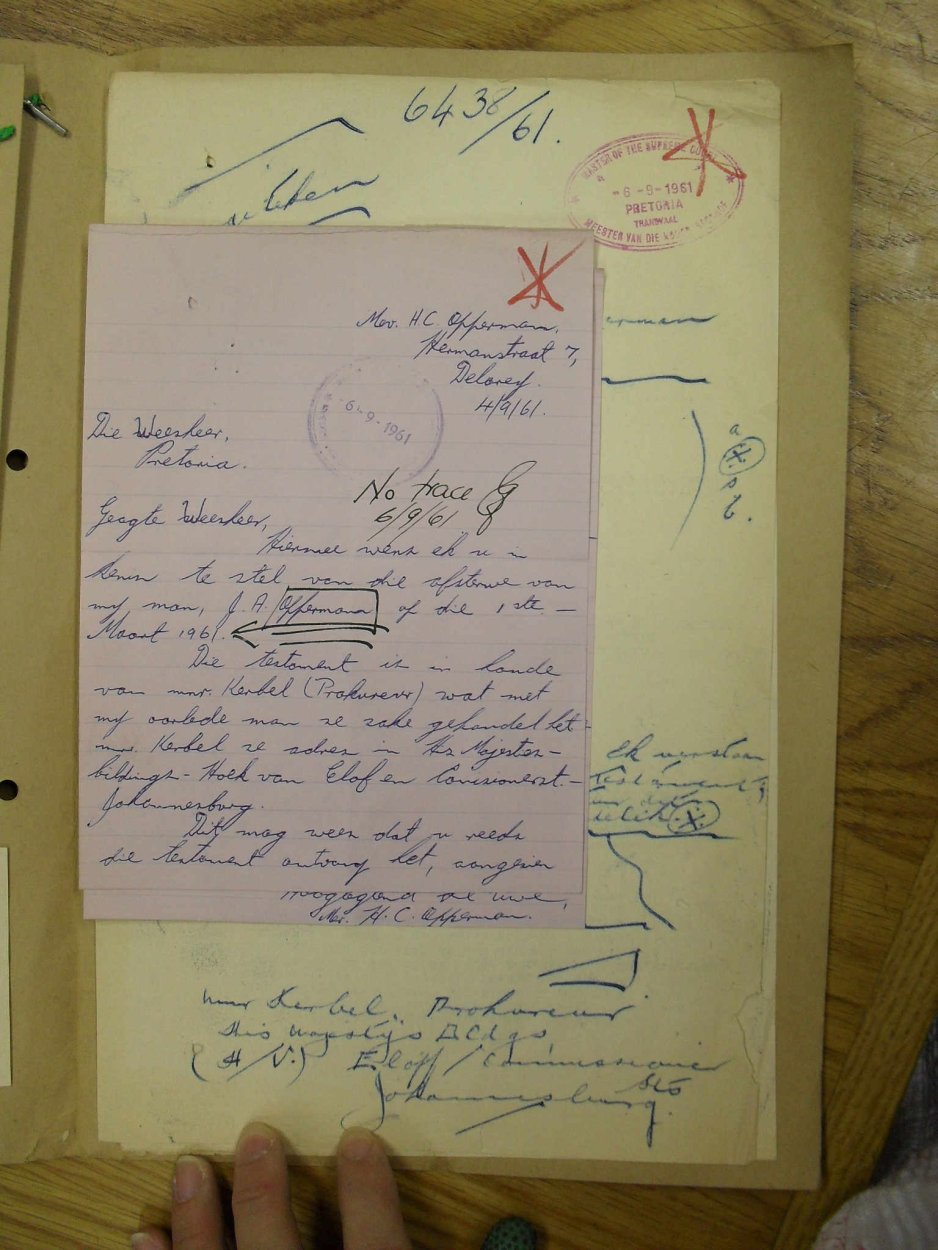 6438/61.
MASTER OF THE SUPREME COURT
-6-9-1961
PRETORIA
TRANSVAAL
MEESTER VAN DIE
Mev. H.C. Opperman,
Hermanstraat 7,
Delarey.
4/9/61.
6-9-1961
Die Weesheer,
Pretoria.
No trace
6/9/61
Geagte Weesheer,
Hiermee wens ek u in
kennis te stel van die afsterwe van
my man, J. A. Opperman op die 1ste
Maart 1961.
Die testament is in hande
van mnr. Kerbel (Prokureur) wat met
my oorlede man se sake gehandel het
mnr. Kerbel se adres is His Majesties-
bildings - Hoek van Elof en Comisionerst. -
Johannesburg.
Dit mag wees dat u reeds
die testament ontvang het, aangesien
Hoogagend die uwe,
Mev. H. C. Opperman.
Ek verstaan
mnr Kerbel, Prokureur
His Majestys Bldgs
(H/V.) Eloff / Commissioner
Sts
Johannesburg.